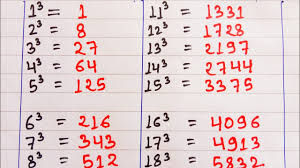 1³ = 1
2³ = 8
3³ = 27
4³ = 64
5³ = 125
6³ = 216
7³ = 343
8³ = 512
11³ = 1331
12³ = 1728
13³ = 2197
14³ = 2744
15³ = 3375
16³ = 4096
17³ = 4913
18³ = 5832